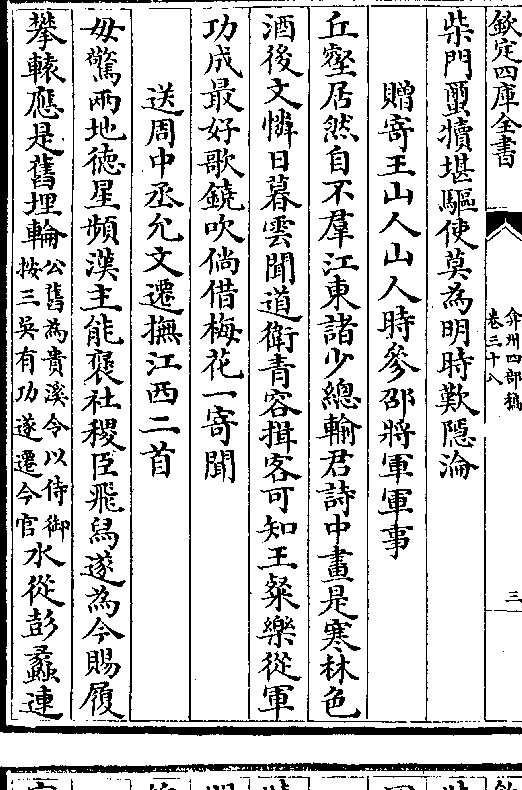 欽定四庫全書
弇州四部稿
卷三十八
三
柴門蠒犢堪驅使莫為明時歎隠淪
贈寄王山人山人時參邵將軍軍事
丘壑居然自不羣江東諸少總輸君詩中畫是寒林色
酒後文憐日暮雲聞道衛青客揖客可知王粲樂從軍
功成最好歌鐃吹倘借梅花一寄聞
送周中丞允文遷撫江西二首
毋驚兩地徳星頻漢主能褒社稷臣飛舄遂為今賜履
攀轅應是舊埋輪公舊為貴溪令以侍御按三吳有功遂遷今官水從彭蠡連